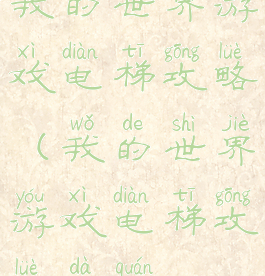 我的世界游
xì diàn tī gōng lüè
戏电梯攻略
wǒ de shì jiè
（我的世界
yóu xì diàn tī gōng
游戏电梯攻
lüè dà quán